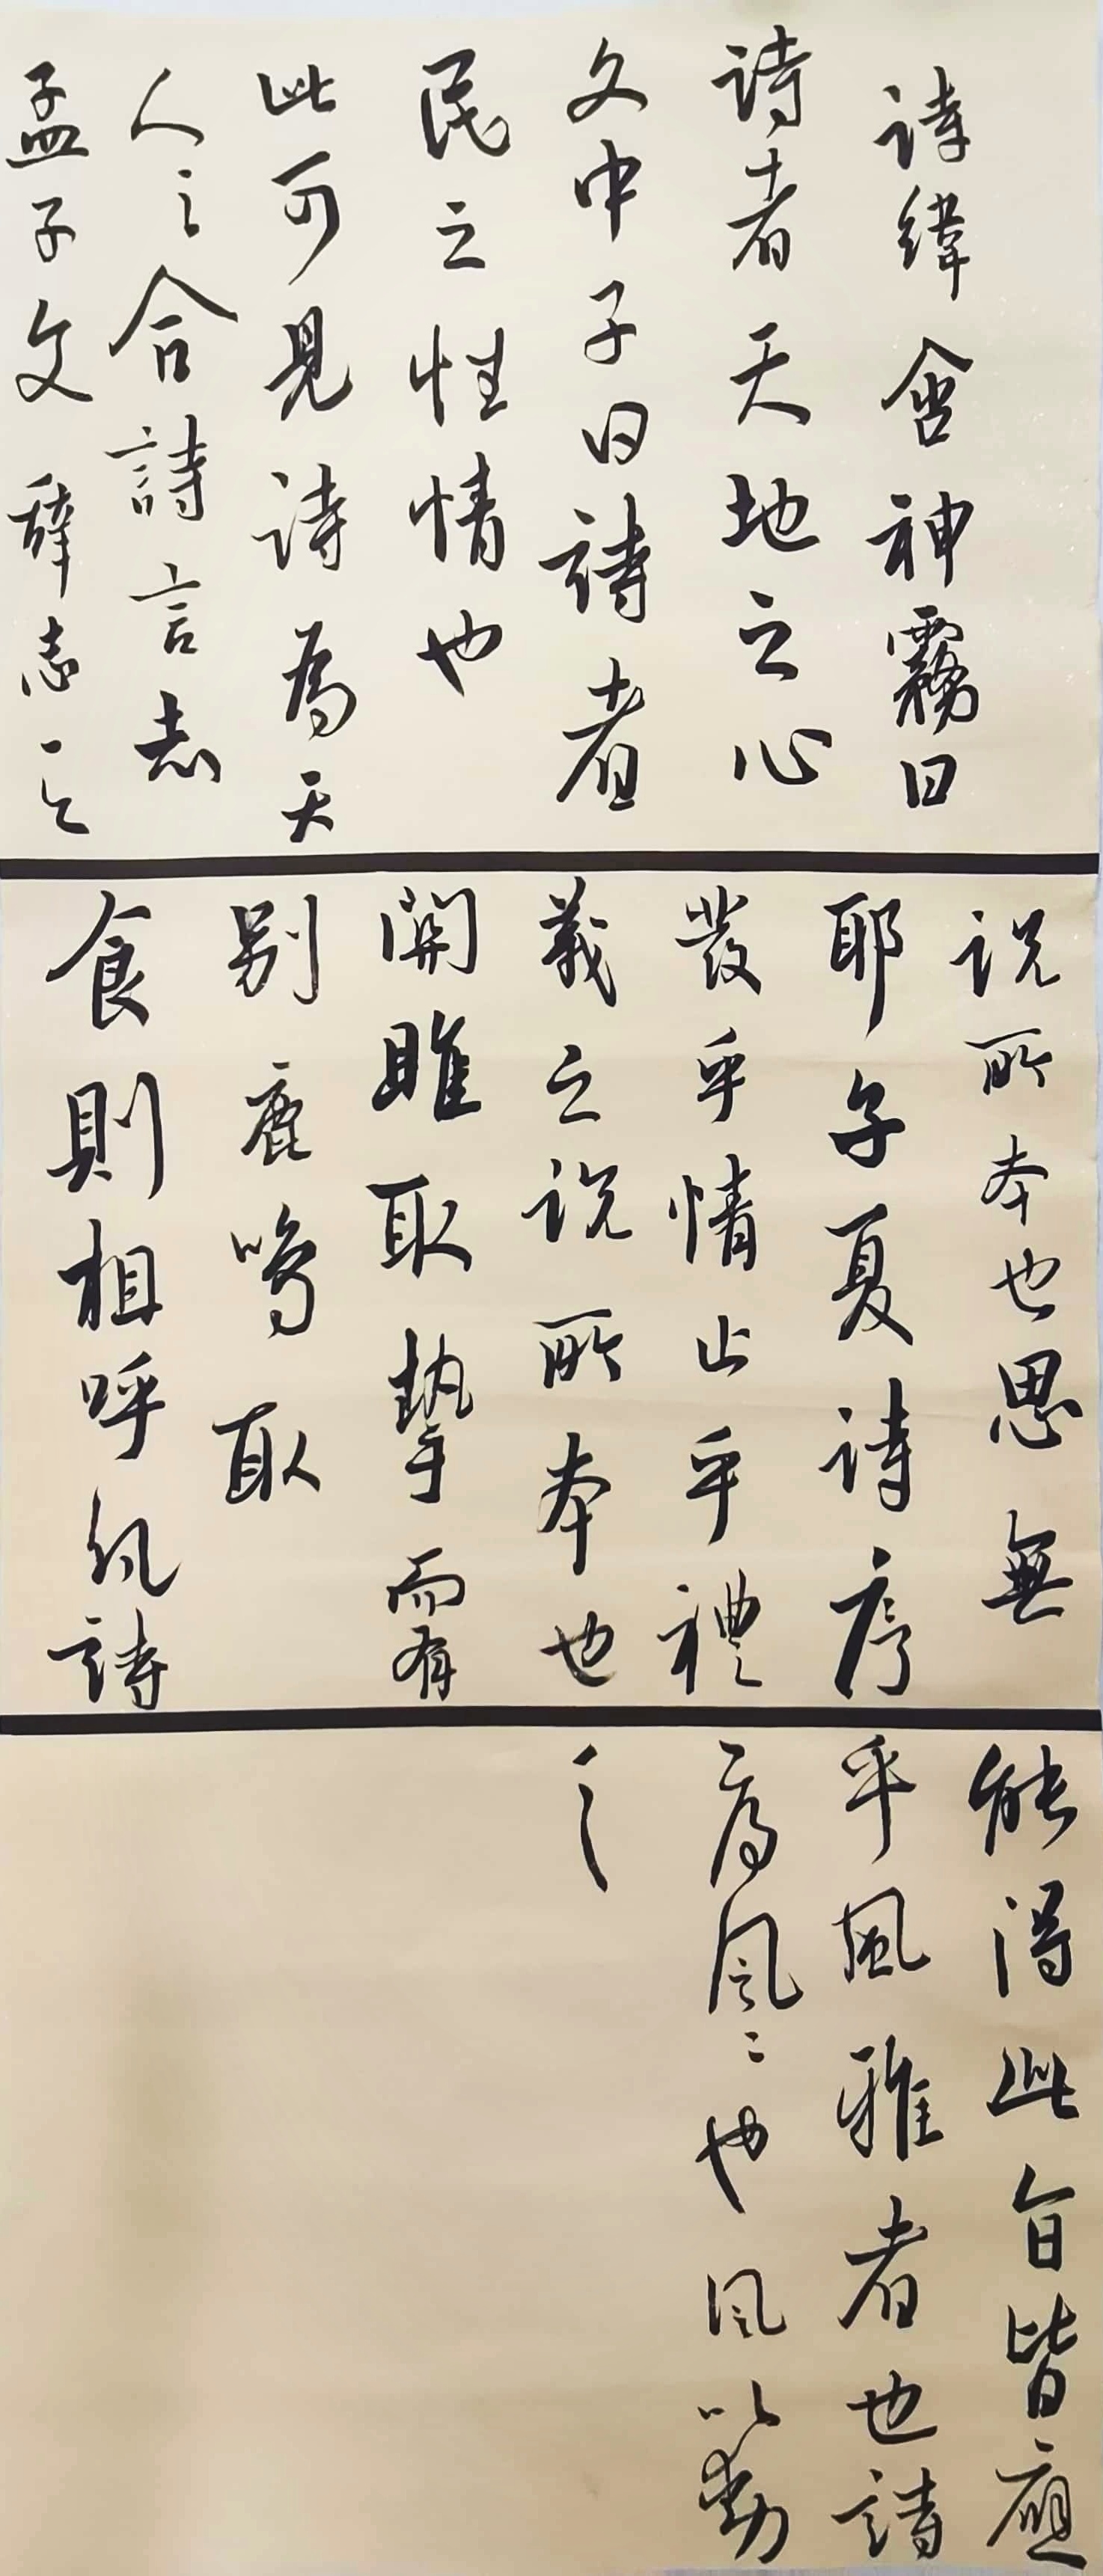 詩緯含神霧曰
詩者天地之心
文中子曰詩者
民之性情也
此可見詩為天
人之合詩言志
孟子文辭志之
說所本也思無
耶子夏詩序
發乎情止乎禮
義之說所本也
關雎取摯而有
別鹿鳴取
食則相呼凡詩
能得此旨皆應
乎風雅者也詩
序風〻也風以動
之